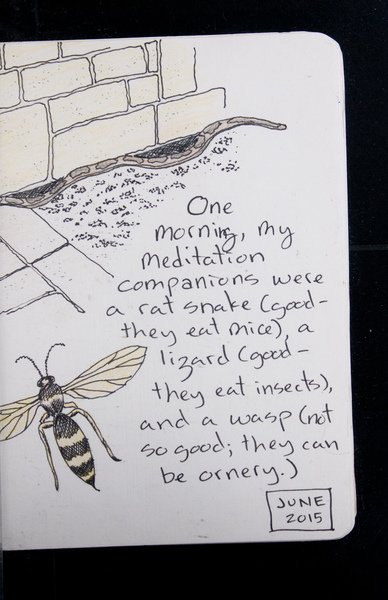 One
morning, my
meditation
companions were
a rat snake (good-
they eat mice), a
lizard (good-
they eat insects),
and a wasp (not
so good; they can
be ornery.)
JUNE
2015